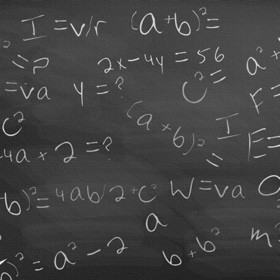 I = v/r (a+b)²=
2x-4y = 56 a²+
=?
=va y = ? c²=
F=
c² (a+b)² I
4a x + 2 = ? = F=
b)²= 4ab/2+c² W=va
a
)²= a² - 2 b + b² m²